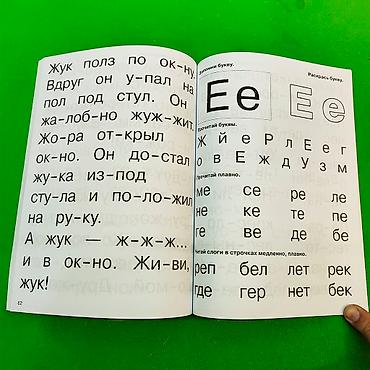 Жук полз по ок-ну.
Вдруг он у-пал на
пол под стул. Он
жа-лоб-но жуж-жит.
Жо-ра от-крыл
ок-но. Он до-стал
жу-ка из-под
сту-ла и по-ло-жил
на ру-ку.
А жук — ж-ж-ж...
и в ок-но. Жи-ви,
жук!
62
Запомни букву.
Раскрась букву.
Ее
Ее
Прочитай буквы.
Ж Й е Р Л Е е г
о в Е Ж Д У З м
Прочитай плавно.
ме се ре ле
не ке те пе
ге ве де бе
Читай слоги в строчках медленно, плавно.
реп бел лет рек
где гер нет бек